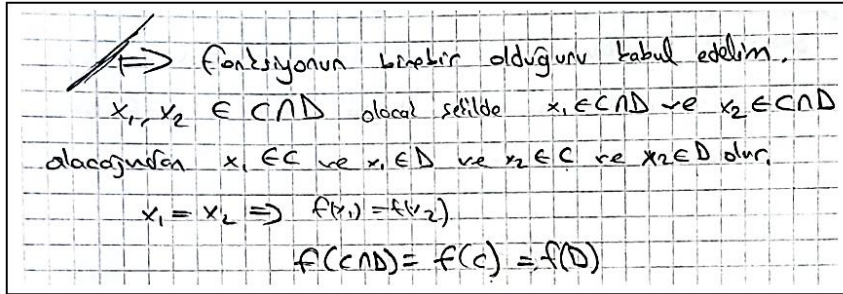 ⟹ fonksiyonun birebir olduğunu kabul edelim.
x₁, x₂ ∈ C∩D olacak şekilde x₁ ∈ C∩D ve x₂ ∈ C∩D
olacağından x₁ ∈ C ve x₁ ∈ D ve x₂ ∈ C ve x₂ ∈ D olur.
x₁ = x₂ ⟹ f(x₁) = f(x₂)
f(C∩D) = f(C) = f(D)